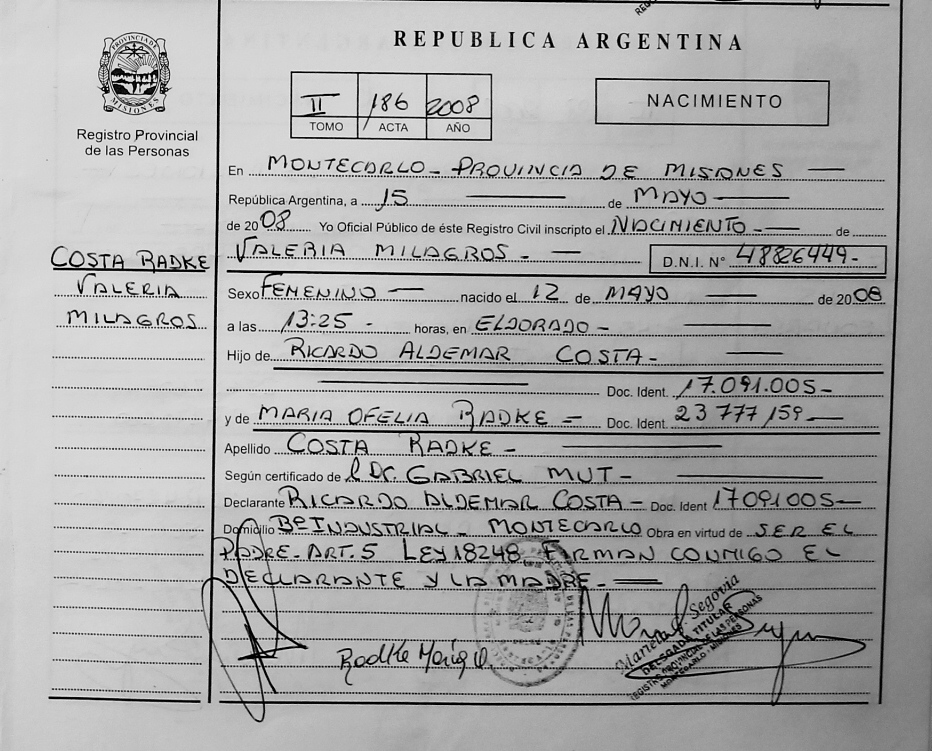 REPUBLICA ARGENTINA
PROVINCIA DE
MISIONES
Registro Provincial
de las Personas
II 186 2008
TOMO ACTA AÑO
NACIMIENTO
En MONTECARLO - PROVINCIA DE MISIONES
República Argentina, a 15 de MAYO
de 2008 Yo Oficial Público de éste Registro Civil inscripto el NACIMIENTO - de
VALERIA MILAGROS - D.N.I. N° 48826449-
COSTA RADKE
VALERIA
MILAGROS
Sexo FEMENINO nacido el 12 de MAYO de 2008
a las 13:25 - horas, en ELDORADO -
Hijo de RICARDO ALDEMAR COSTA -
Doc. Ident. 17.091.005-
y de MARIA OFELIA RADKE - Doc. Ident. 23 777 159-
Apellido COSTA RADKE -
Según certificado de l Dr. GABRIEL MUT -
Declarante RICARDO ALDEMAR COSTA - Doc. Ident 17091005-
Domicilio Bº INDUSTRIAL - MONTECARLO Obra en virtud de SER EL
PADRE - ART. 5 LEY 18248 - FIRMAN CONMIGO EL
DECLARANTE Y LA MADRE -
Radke María O
Segovia
DELEGADA TITULAR
REGISTRO PROVINCIAL DE LAS PERSONAS
MONTECARLO - MISIONES